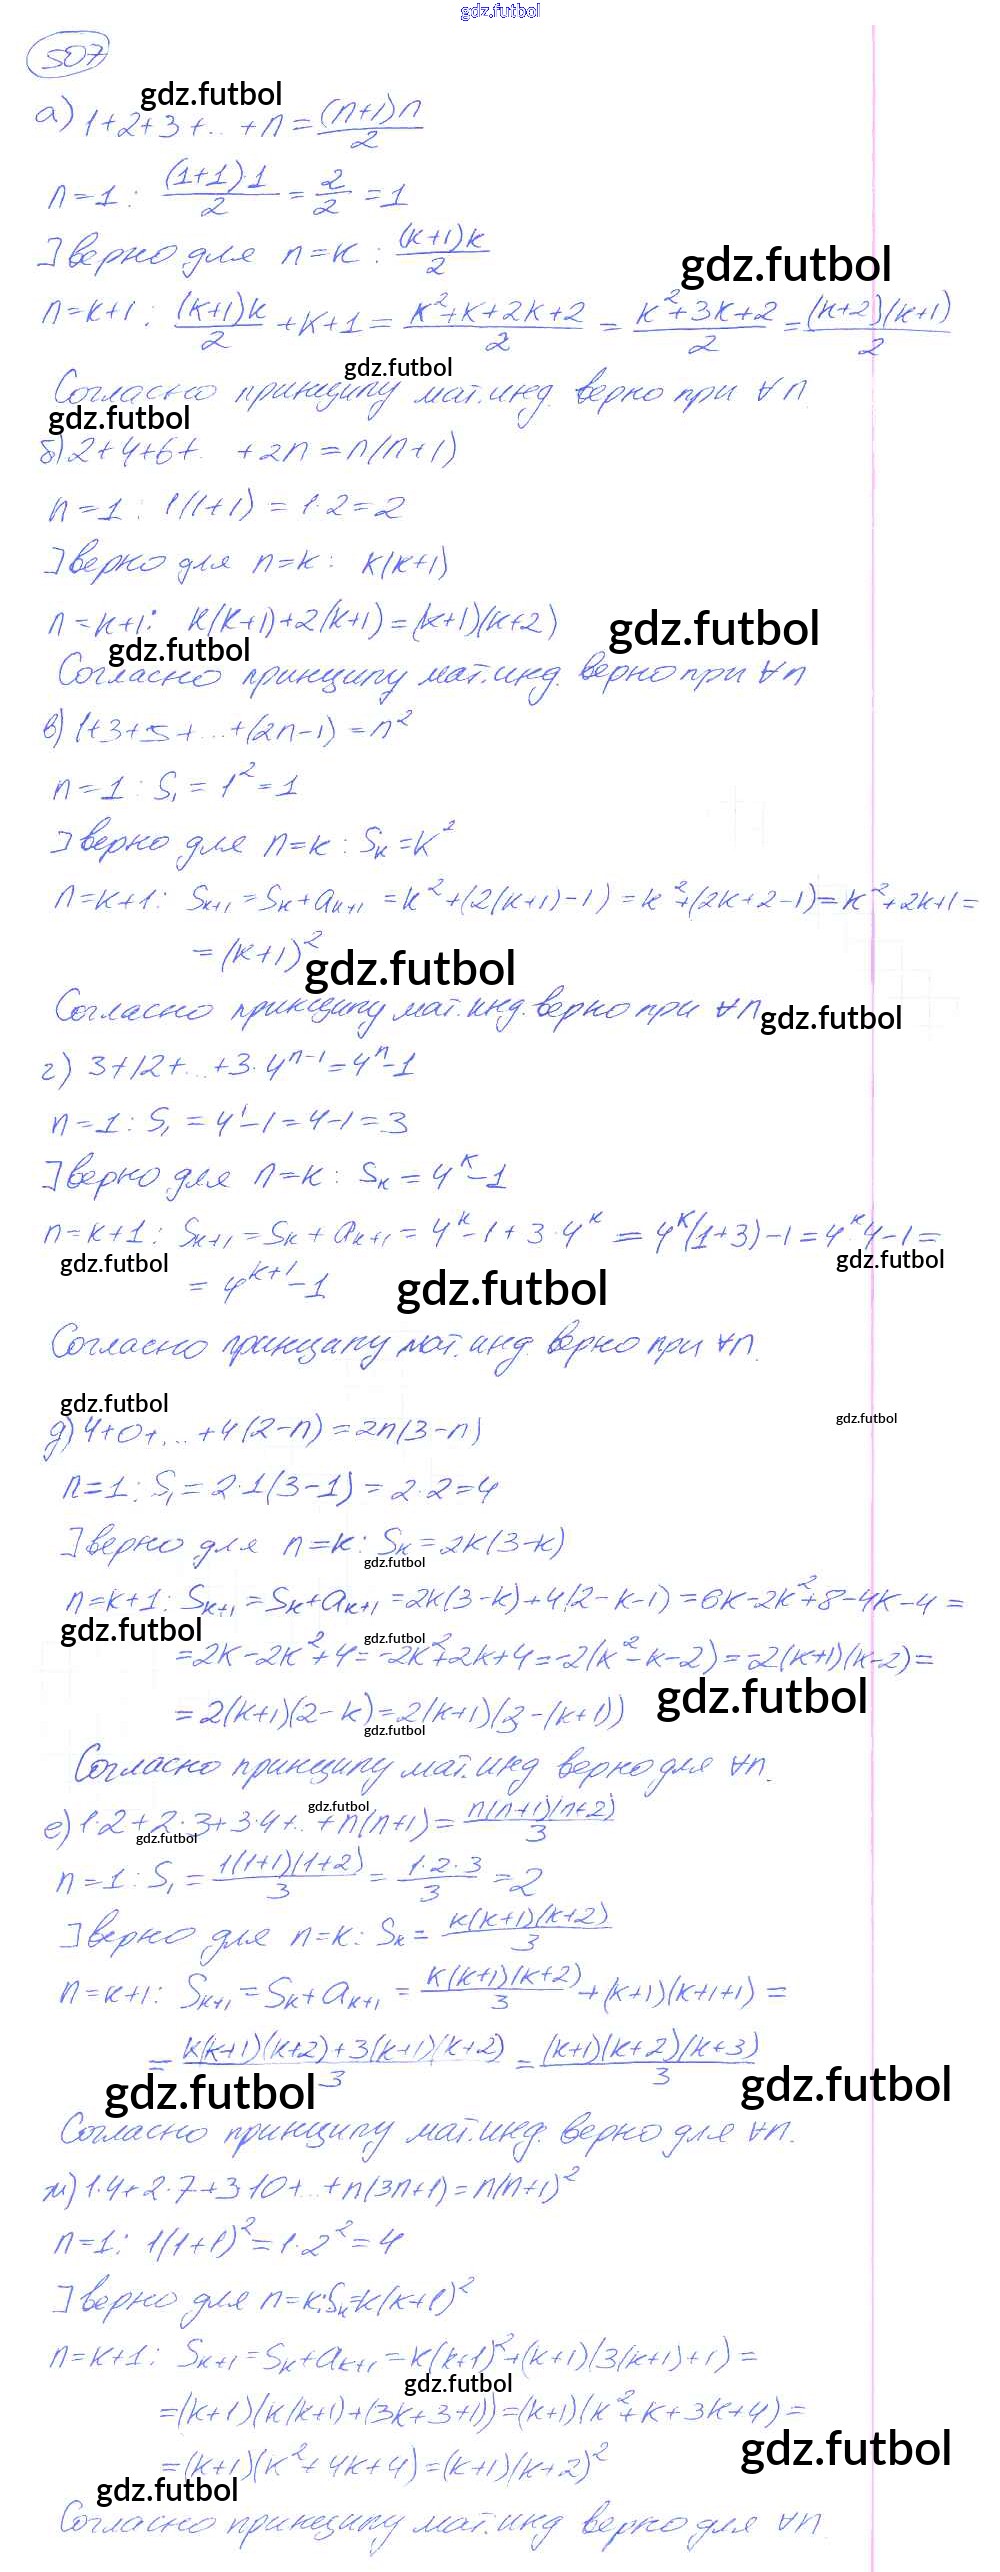 gdz.futbol
507
gdz.futbol
а) 1+2+3+...+n = (n+1)n/2
n=1: (1+1)·1/2 = 2/2 = 1
] верно для n=k: (k+1)k/2
gdz.futbol
n=k+1: (k+1)k/2 + k+1 = k²+k+2k+2/2 = k²+3k+2/2 = (k+2)(k+1)/2
gdz.futbol
Согласно принципу мат.инд. верно при ∀n.
gdz.futbol
б) 2+4+6+... +2n = n(n+1)
n=1: 1(1+1) = 1·2=2
] верно для n=k: k(k+1)
n=k+1: k(k+1)+2(k+1) = (k+1)(k+2)
gdz.futbol
gdz.futbol
Согласно принципу мат.инд. верно при ∀n
в) 1+3+5+...+(2n-1) = n²
n=1: S₁ = 1² = 1
] верно для n=k: Sₖ=k²
n=k+1: Sₖ₊₁ = Sₖ+aₖ₊₁ = k²+(2(k+1)-1) = k²+(2k+2-1) = k²+2k+1 =
= (k+1)²
gdz.futbol
Согласно принципу мат.инд. верно при ∀n
gdz.futbol
г) 3+12+...+3·4ⁿ⁻¹=4ⁿ-1
n=1: S₁ = 4¹-1=4-1=3
] верно для n=k: Sₖ = 4ᵏ-1
n=k+1: Sₖ₊₁ = Sₖ + aₖ₊₁ = 4ᵏ-1+3·4ᵏ = 4ᵏ(1+3)-1 = 4ᵏ·4-1 =
gdz.futbol
gdz.futbol
= 4ᵏ⁺¹-1
gdz.futbol
Согласно принципу мат.инд. верно при ∀n.
gdz.futbol
gdz.futbol
д) 4+0+...+4(2-n) = 2n(3-n)
n=1: S₁ = 2·1(3-1) = 2·2=4
] верно для n=k: Sₖ=2k(3-k)
gdz.futbol
n=k+1: Sₖ₊₁ = Sₖ+aₖ₊₁ = 2k(3-k)+4(2-k-1) = 6k-2k²+8-4k-4 =
gdz.futbol
gdz.futbol
= 2k-2k²+4 = -2k²+2k+4 = -2(k²-k-2) = -2(k+1)(k-2) =
gdz.futbol
= 2(k+1)(2-k) = 2(k+1)(3-(k+1))
gdz.futbol
Согласно принципу мат.инд верно для ∀n.
gdz.futbol
е) 1·2+2·3+3·4+...+n(n+1) = n(n+1)(n+2)/3
gdz.futbol
n=1: S₁ = 1(1+1)(1+2)/3 = 1·2·3/3 = 2
] верно для n=k: Sₖ = k(k+1)(k+2)/3
n=k+1: Sₖ₊₁ = Sₖ+aₖ₊₁ = k(k+1)(k+2)/3 + (k+1)(k+1+1) =
= k(k+1)(k+2)+3(k+1)(k+2)/3 = (k+1)(k+2)(k+3)/3
gdz.futbol
gdz.futbol
Согласно принципу мат.инд. верно для ∀n.
ж) 1·4+2·7+3·10+...+n(3n+1) = n(n+1)²
n=1: 1(1+1)² = 1·2² = 4
] верно для n=k: Sₖ=k(k+1)²
n=k+1: Sₖ₊₁ = Sₖ+aₖ₊₁ = k(k+1)²+(k+1)(3(k+1)+1) =
gdz.futbol
= (k+1)(k(k+1)+(3k+3+1)) = (k+1)(k²+k+3k+4) =
gdz.futbol
= (k+1)(k²+4k+4) = (k+1)(k+2)²
gdz.futbol
Согласно принципу мат.инд верно для ∀n.